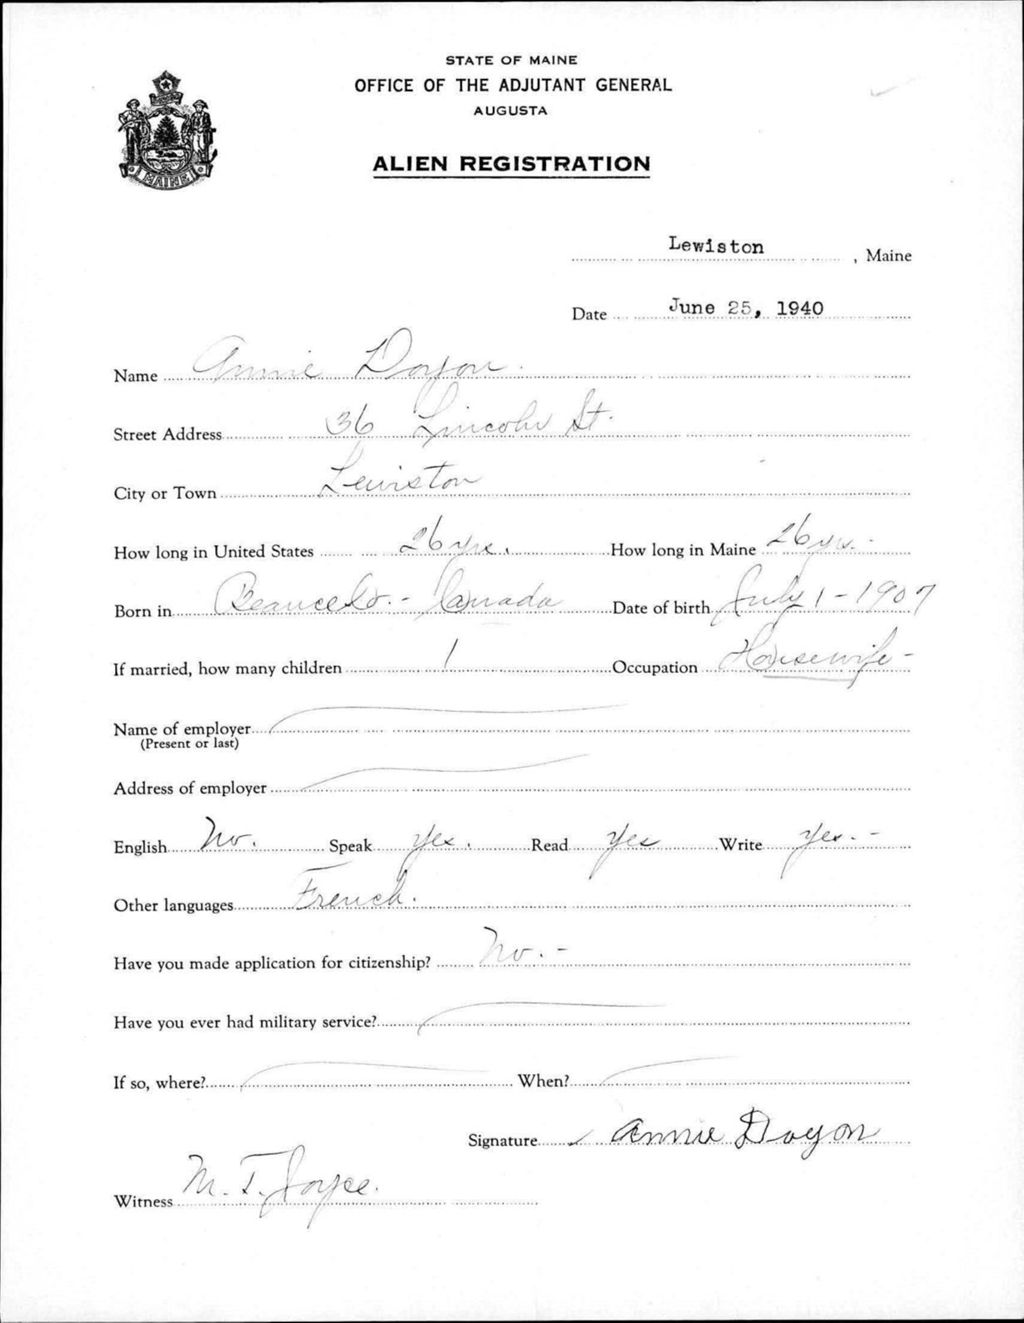 STATE OF MAINE
OFFICE OF THE ADJUTANT GENERAL
AUGUSTA
ALIEN REGISTRATION
MAINE
Lewiston, Maine
Date June 25, 1940
Name Annie Doyon
Street Address 36 Lincoln St.
City or Town Lewiston
How long in United States 26 yrs. How long in Maine 26 yrs.
Born in Canada Date of birth July 1 - 1907
If married, how many children 1 Occupation Housewife -
Name of employer
(Present or last)
Address of employer
English No. Speak Yes. Read Yes Write Yes. -
Other languages French.
Have you made application for citizenship? No. -
Have you ever had military service?
If so, where? When?
Signature Annie Doyon
Witness M. T. Joyce.